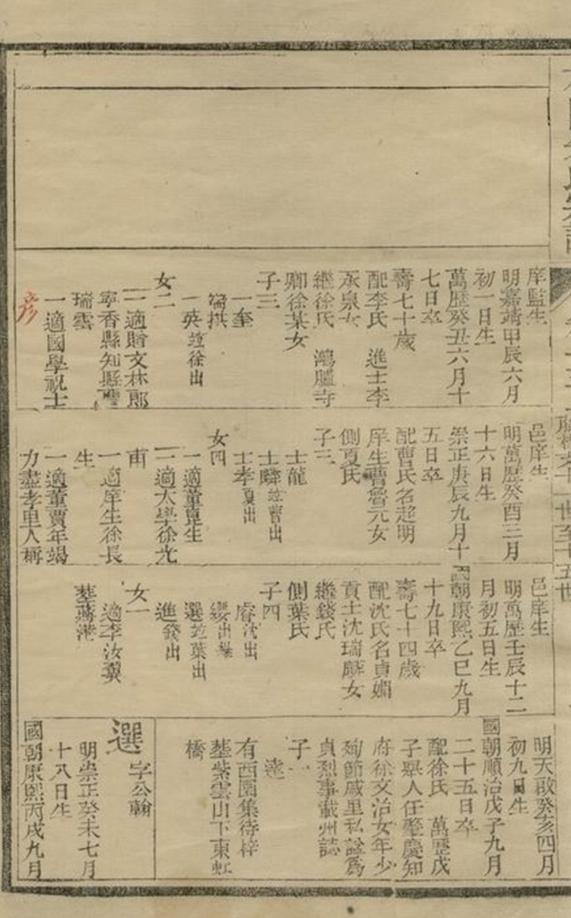 庠監生
明嘉靖甲辰六月
初一日生
萬歷癸丑六月十
七日卒
壽七十歲
配李氏 進士李
汞泉女
繼徐氏 鴻臚寺
卿徐某女
子三
一奎
一英竝徐出
女二
一適贈文林郎
寧香縣知縣
瑞雲
一適國學祝士
彦
邑庠生
明萬歷癸酉三月
十六日生
崇正庚辰九月十
五日卒
配曹氏名起明
庠生曹魯元女
側夏氏
子三
士龍
士麟竝曹出
士孝夏出
女四
一適董夏生
一適大學徐允
甫
一適庠生徐長
生
一適董賈年竭
力盡孝里人稱
邑庠生
明萬歷壬辰十二
月初五日生
國朝康熙乙巳九月
十九日卒
壽七十四歲
配沈氏名貞嫺
貢士沈瑞麟女
繼錢氏
側葉氏
子四
睿沈出
纓出繼
選竝葉出
進錢出
女一
適李汝翼
葬蔣港
明天啟癸亥四月
初九日生
國朝順治戊子九月
二十五日卒
配徐氏 萬歷戊
子舉人任肇慶知
府徐文治女年少
殉節戚里私諡爲
貞烈事載州誌
子一
逵
有西園集待梓
葬紫雲山下東虹
橋
選 字公翰
明崇正癸未七月
十八日生
國朝康熙丙戌九月